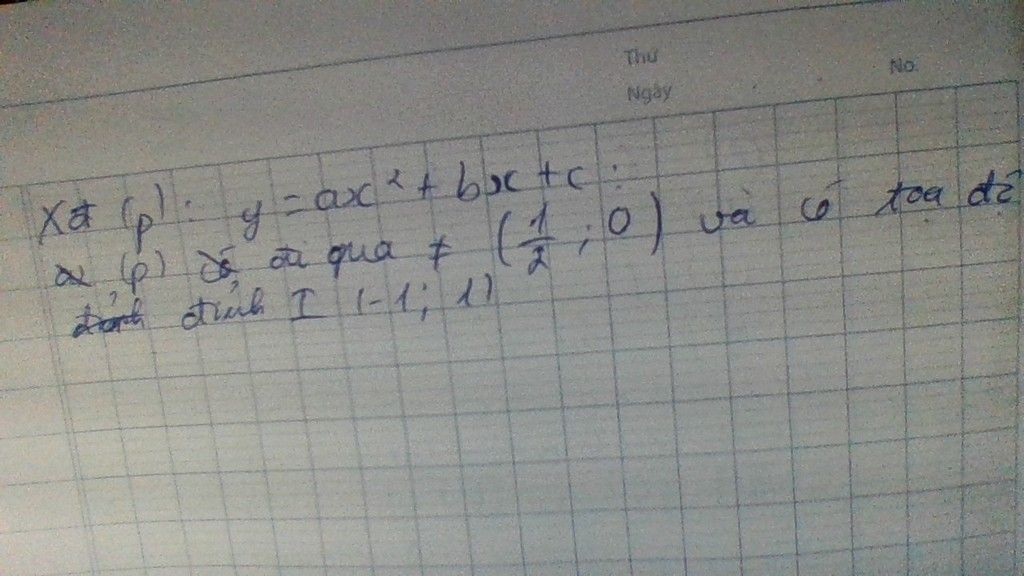 Thứ
No.
Ngày
Xđ (p): y = ax² + bx + c :
(p) đi qua (1/2 ; 0) và có toạ độ
đỉnh I (-1; 1)